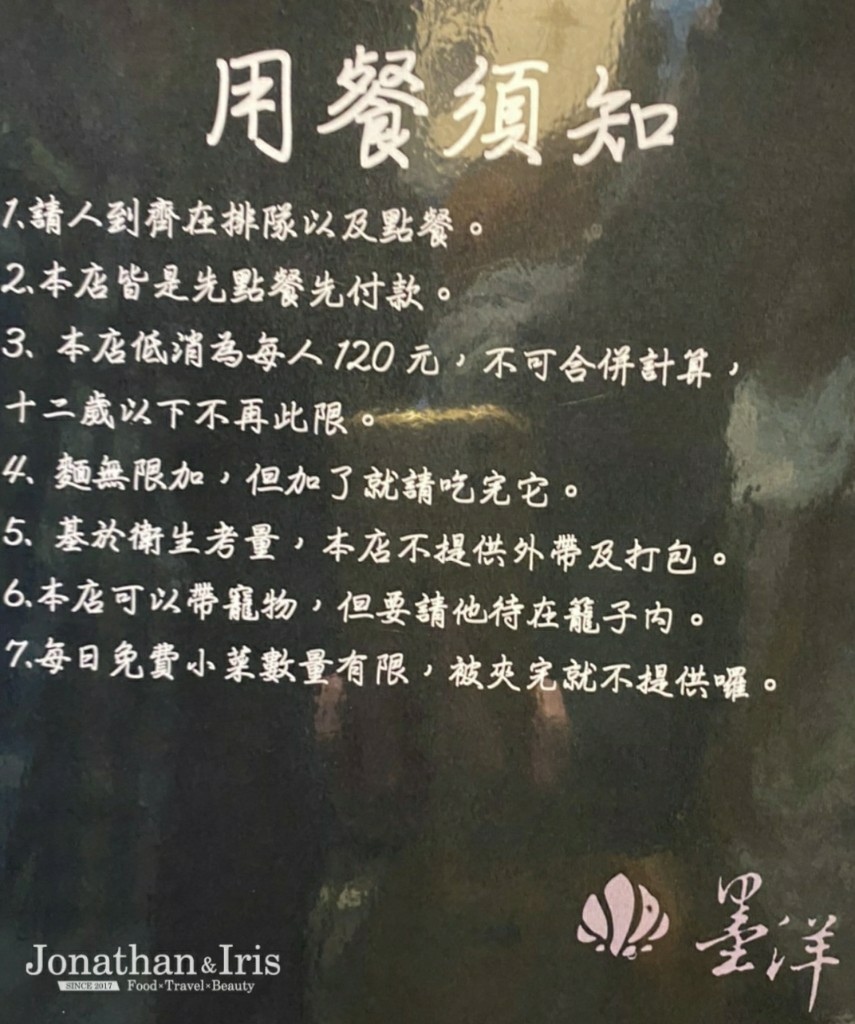 用餐須知
1、請人到齊在排隊以及點餐。
2、本店皆是先點餐先付款。
3、本店低消為每人120元，不可合併計算，
十二歲以下不再此限。
4、麵無限加，但加了就請吃完它。
5、基於衛生考量，本店不提供外帶及打包。
6、本店可以帶寵物，但要請他待在籠子內。
7、每日免費小菜數量有限，被夾完就不提供囉。
墨洋
Jonathan & Iris
SINCE 2017 Food×Travel×Beauty